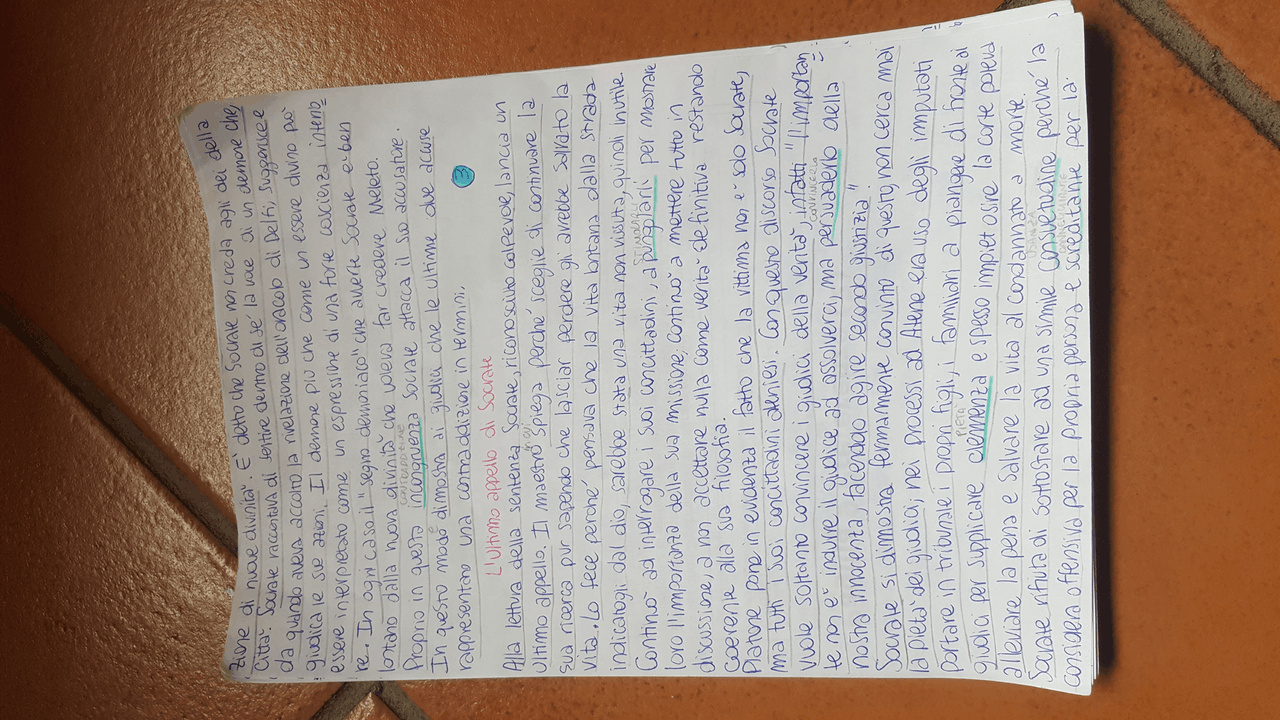 zione di nuove divinità. È detto che Socrate non creda agli dei della
città. Socrate raccontava di sentire dentro di sé la voce di un demone che,
da quando aveva accolto la rivelazione dell'oracolo di Delfi, suggerisce e
giudica le sue azioni. Il demone più che come un essere divino può
essere interpretato come un espressione di una forte coscienza interio
re. In ogni caso il "segno demoniaco" che avverte Socrate è ben
lontano dalla nuova divinità che voleva far credere Meleto.
CONTRADDIZIONE
Proprio in questa incongruenza Socrate attacca il suo accusatore.
In questo modo dimostra ai giudici che le ultime due accuse
rappresentano una contraddizione in termini.
3
L'Ultimo appello di Socrate
Alla lettura della sentenza Socrate, riconosciuto colpevole, lancia un
ultimo appello. Il maestro spiega perché sceglie di continuare la
sua ricerca pur sapendo che lasciar perdere gli avrebbe salvato la
vita. Lo fece perché pensava che la vita lontana dalla strada
indicatogli dal dio, sarebbe stata una vita non vissuta, quindi inutile.
STIMOLARLI
Continuò ad interrogare i suoi concittadini, a pungolarli per mostrare
loro l'importanza della sua missione; continuò a mettere tutto in
discussione, a non accettare nulla come verità definitiva restando
coerente alla sua filosofia.
Platone pone in evidenza il fatto che la vittima non è solo Socrate,
ma tutti i suoi concittadini ateniesi. Con questo discorso Socrate
vuole soltanto convincere i giudici della verità, infatti "l'importan
CONVINCERLO
te non è indurre il giudice ad assolverci, ma persuaderlo della
nostra innocenza, facendolo agire secondo giustizia".
Socrate si dimostra fermamente convinto di questo, non cerca mai
la pietà dei giudici; nei processi ad Atene era uso degli imputati
portare in tribunale i propri figli, i familiari a piangere di fronte ai
PIETÀ
giudici per supplicare clemenza e spesso impietosire la corte poteva
alleviare la pena e salvare la vita al condannato a morte.
USANZA
Socrate rifiuta di sottostare ad una simile consuetudine perché la
considera offensiva per la propria persona e screditante per la